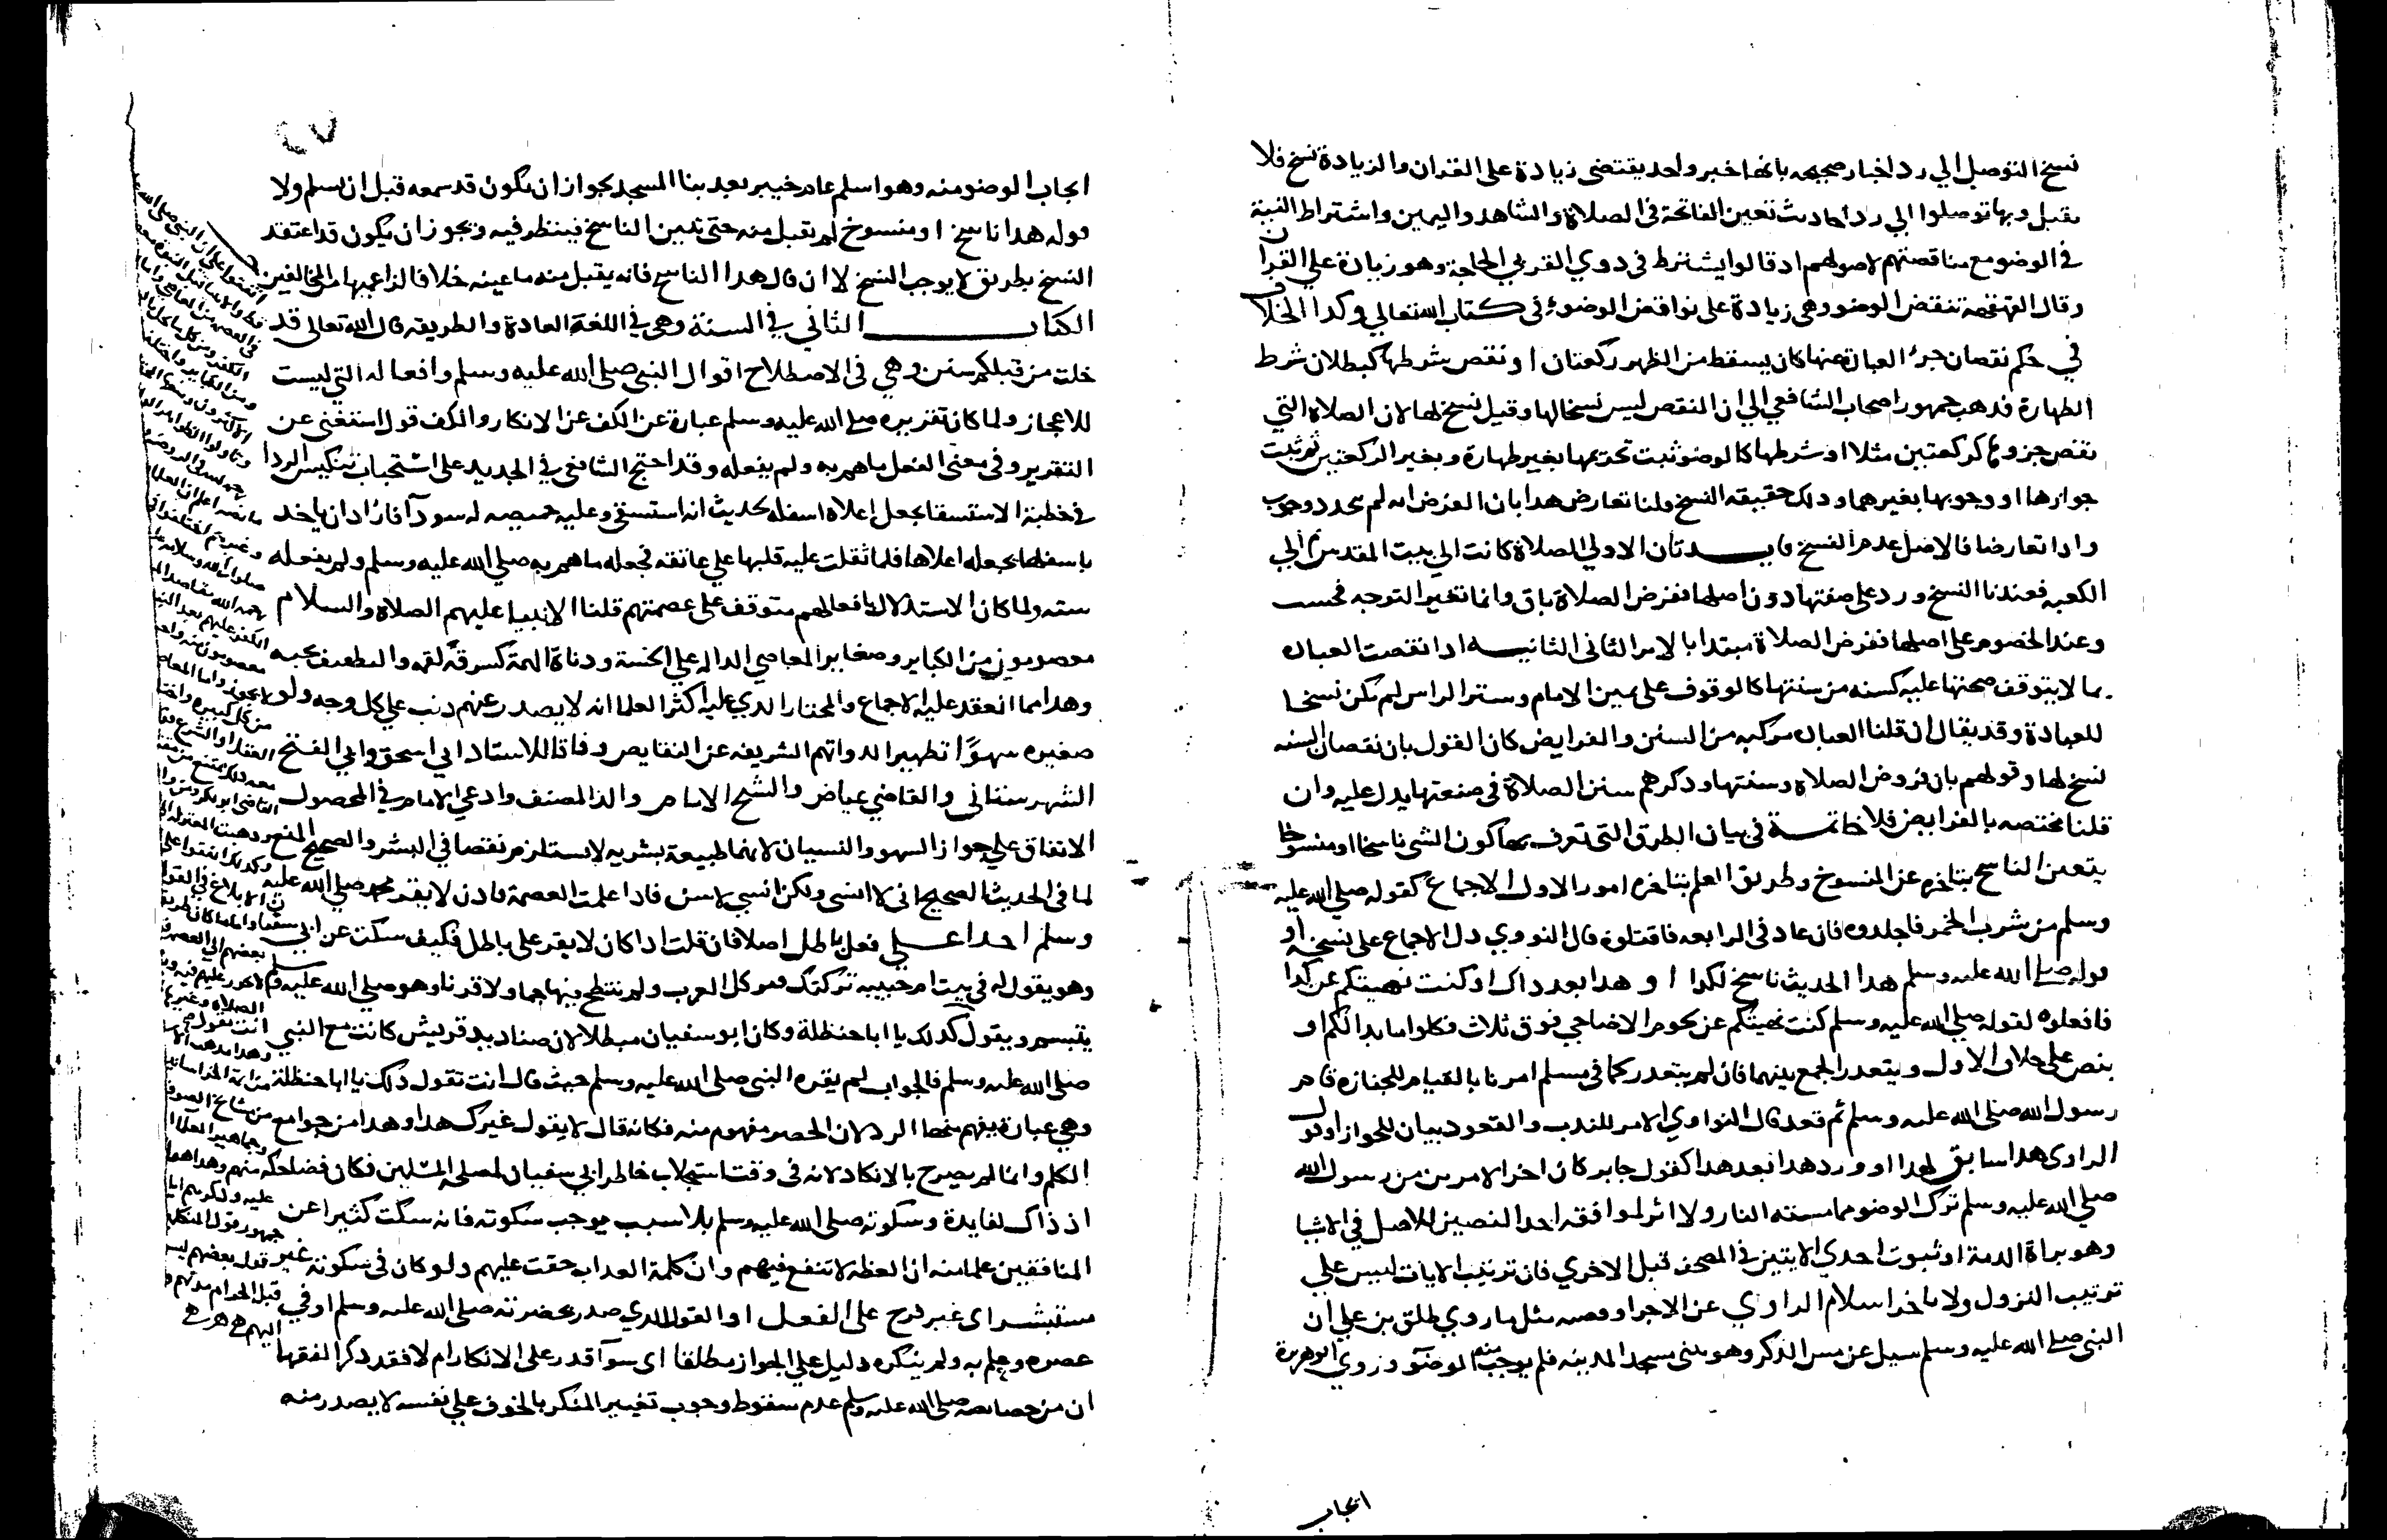 نسخ التوصل الي رد اخبار صحيحه بانها خبر واحد يقتضى زيادة على القران والزيادة نسخ فلا
يقبل وبها توصلوا الي رد احاديث تعين الفاتحة فى الصلاة والشاهد واليمين واشتراط النية
فى الوضو مع مناقضتهم لاصولهم اد قالوا يشترط فى دوي القربي الحاجة وهو زيادة علي القران
وقال القهقهه تنقض الوضو وهي زيادة على نواقض الوضوء فى كتاب الله تعالي وكدا الخلاف
في حكم نقصان جزء العبادة عنها كان يسقط من الظهر ركعتان او نقص شرطها كبطلان شرط
الطهارة فدهب جمهور اصحاب الشافعي الي ان النقص ليس نسخالها وقيل نسخ لها لان الصلاة التي
نقص جزوها كركعتين مثلا او شرطها كالوضو ثبت تحريمها بغير طهارة وبغير الركعتين ثم ثبت
جوازها او وجوبها بغيرهما ودلك حقيقه النسخ ولنا تعارض هدا بان الفرض انه لم يتجدد وجوب
وادا تعارضا فالاصل عدم النسخ فايدتان الاولي الصلاة كانت الي بيت المقدس ثم الي
الكعبه فعندنا النسخ ورد على صفتها دون اصلها ففرض الصلاة باق وانما تغير التوجه فحسب
وعند الخصوم على اصلها ففرض الصلاة مبتدا بالامر الثانى الثانيه ادا نقصت العباده
بما لا يتوقف صحتها عليه كسنه من سنتها كالوقوف على يمين الامام وستر الراس لم يكن نسخا
للعبادة وقد يقال ان قلنا العباده مركبه من السنن والفرايض كان القول بان نقصان السنه
نسخ لها وقولهم بان فروض الصلاة وسنتها ودكرهم سنن الصلاة فى صفتها يدل عليه وان
قلنا مختصه بالفرايض فلا خاتمة في بيان الطرق التي تعرف بها كون الشي ناسخا او منسوخا
يتعين الناسخ بتاخره عن المنسوخ وطريق العلم بتاخره امور الاول الاجماع كقوله صلي الله عليه
وسلم من شرب الخمر فاجلدوه فان عاد فى الرابعه فاقتلوه قال النووي دل الاجماع على نسخه او
قوله صلي الله عليه وسلم هدا الحديث ناسخ لكدا او هدا بعد داك او كنت نهيتكم عن كدا
فافعلوه لقوله صلي الله عليه وسلم كنت نهيتكم عن لحوم الاضاحي فوق ثلاث فكلوا ما بدا لكم او
ينص على خلاف الاول ويتعدر الجمع بينهما فان لم يتعدر كما في مسلم امرنا بالقيام للجنازه قام
رسول الله صلى الله عليه وسلم ثم قعد قال النواوي الامر للندب والقعود بيان للجواز او قول
الراوى هدا سابق لهدا او ورد هدا بعد هدا كقول جابر كان اخر الامرين من رسول الله
صلي الله عليه وسلم ترك الوضو مما مسته النار ولا اثر لموافقه احد النصين للاصل في الاشيا
وهو براة الدمة او ثبوت احدي الايتين في المصحف قبل الاخري فان ترتيب الايات ليس علي
ترتيب النزول ولا تاخر اسلام الراوي عن الاخر او قصه مثل ما روي طلق بن علي ان
النبى صلى الله عليه وسلم سيل عن مس الدكر وهو يبنى مسجد المدينه فلم يوجب منه الوضوء وروي ابو هريرة
ايجاب
٢٧
ايجاب الوضو منه وهو اسلم عام خيبر بعد بنا المسجد لجواز ان يكون قد سمعه قبل ان يسلم ولا
قوله هدا ناسخ او منسوخ لم تقبل منه حتى تبين الناسخ فينظر فيه ويجوز ان يكون قد اعتقد
النسخ بطريق لا يوجب النسخ لا ان قال هدا الناسخ فانه يقبل منه ما عينه خلافا لزاعميها من المخالفين
الكتاب الثاني في السنة وهي في اللغة العادة والطريقه قال الله تعالى قد
خلت من قبلكم سنن وهي في الاصطلاح اقوال النبي صلى الله عليه وسلم وافعاله التي ليست
للاعجاز ولما كان تقريره صلى الله عليه وسلم عبارة عن الكف عن الانكار والكف قول استغنى عن
التقرير وفى معنى الفعل ما هم به ولم يفعله وقد احتج الشافعي في الجديد على استحباب تنكيس الردا
في خطبة الاستسقا بجعل اعلاه اسفله بحديث انه استسقى وعليه خميصه له سودآ فاراد ان ياخد
باسفلها يجعله اعلاها فلما ثقلت عليه قلبها علي عاتقه فجعله ما هم به صلي الله عليه وسلم ولم يفعله
سنه ولما كان الاستدلال بافعالهم متوقف على عصمتهم قلنا الانبيا عليهم الصلاة والسلام
معصومون من الكباير وصغاير المعاصي الداله علي الخسة ودناة الهمة كسرقة لقمه والتطفيف بحبه
وهدا مما انعقد عليه الاجماع والمختار الدي عليه اكثر العلما انه لا يصدر عنهم دنب علي كل وجه ولو
صغيره سهوًا تطهيرا لدواتهم الشريفه عن النقايص وفاقا للاستاد ابي اسحق وابي الفتح
الشهرستانى والقاضي عياض والشيخ الامام والد المصنف وادعي الامام في المحصول
الاتفاق علي جواز السهو والنسيان لانهما طبيعة بشريه لا يستلزم نقصا في البشر والصحيح المنع
لما فى الحديث الصحيح انى لا انسى ولكن انسي لاسن فادا علمت العصمة فادن لا يقر محمد صلى الله عليه
وسلم احدا علي فعل باطل اصلا فان قلت ادا كان لا يقر على باطل فكيف سكت عن ابي سفيان
وهو يقول له فى بيت ام حبيبه تركتك فتركك العرب ولم تنتطح فيها جما ولا قرنا وهو صلي الله عليه وسلم
يتبسم ويقول كدلك يا ابا حنظلة وكان ابو سفيان مبطلا لان صناديد قريش كانت مع النبي
صلى الله عليه وسلم فالجواب لم يقره النبى صلى الله عليه وسلم حيث قال انت تقول دلك يا ابا حنظلة
وهي عبارة يفهم منها الرد لان الحصر مفهوم منه فكانه قال لا يقول غيرك هدا وهدا من جوامع
الكلم وانما لم يصرح بالانكار لانه فى وقت استجلاب خاطر ابي سفيان لمصلحة المسلمين فكان فضلحكه
اذ ذاك لفايدة وسكوته صلى الله عليه وسلم بلا سبب يوجب سكوته فانه سكت كثيرا عن
المنافقين علما منه ان العظه لا تنفع فيهم وان كلمة العداب حقت عليهم ولو كان فى سكوته غير
مستبشر اى غير فرح على الفعل او القول الدي صدر بحضرته صلى الله عليه وسلم او في
عصره وعلم به ولم ينكره دليل علي الجواز مطلقا اى سوآ قدر على الانكار ام لا فقد دكر الفقها
ان من خصايصه صلي الله عليه وسلم عدم سقوط وجوب تغيير المنكر بالخوف علي نفسه لا يصدر منه